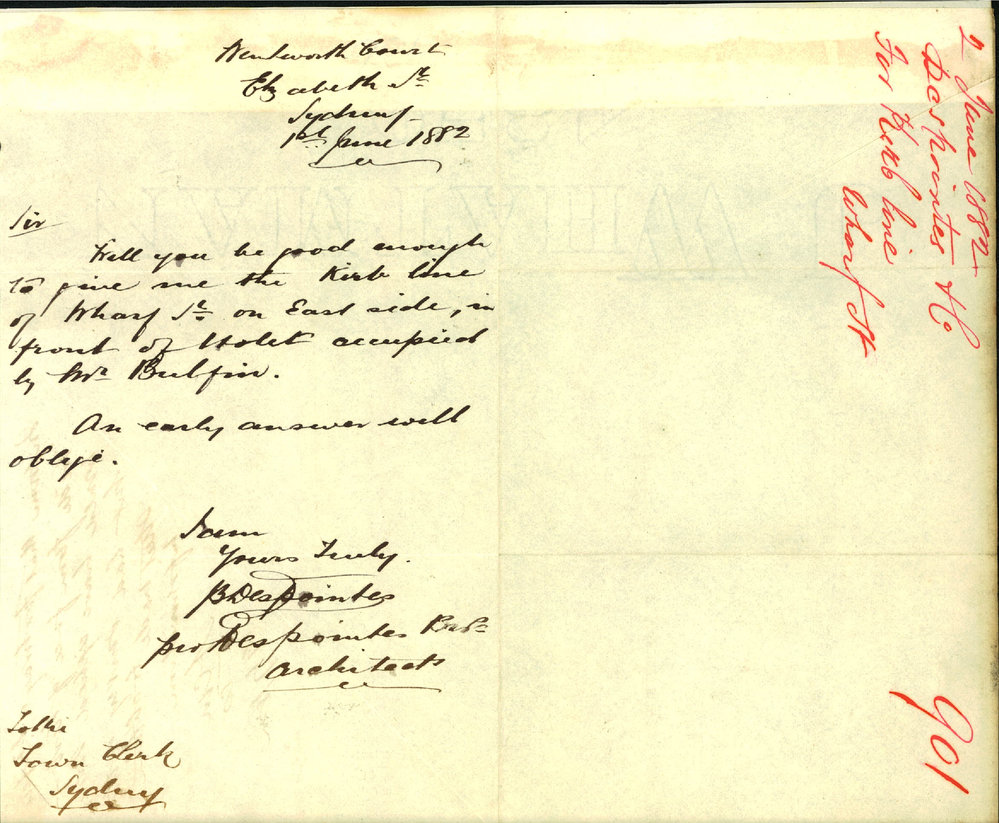 Wentworth Court
Elizabeth St
Sydney
1st June 1882
Sir
Will you be good enough
to give me the Kirb line
of Wharf St on East side, in
front of Hotel occupied
by Mr Bulfin.
An early answer will
oblige.
I am
Yours Truly.
B Des Pointes
pro Des pointes
Architects
To the
Town Clerk
Sydney
2 June 1882
Despointes & Co
For Kerb line
Wharf St
901